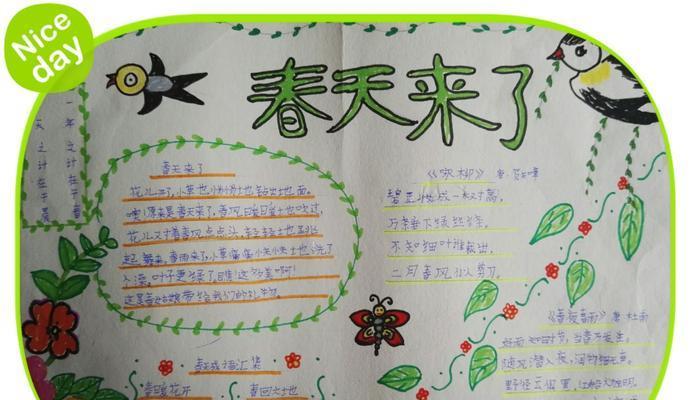 Nice
day
春天来了
一年之计在于春
天之计在于晨
春天来了
花儿开了,小草也悄悄地钻出地面。
噢!原来是春天来了,春风暖暖地吹过,
花儿对着春风点点头,轻轻地跳
起舞来,春雨来了,小草痛痛快快地洗了
入澡。叶子更绿了,瞧!这多美啊!
这是春姑娘带给我们的礼物。
《咏柳》 唐·贺知章
碧玉妆成一树高,
万条垂下绿丝绦。
不知细叶谁裁出,
二月春风似剪刀。
《春夜喜雨》唐 杜甫
好雨知时节,当春乃发生。
随风潜入夜,润物细无声。
野径云俱黑,江船火独明。
春天成语汇集
春暖花开 春回大地